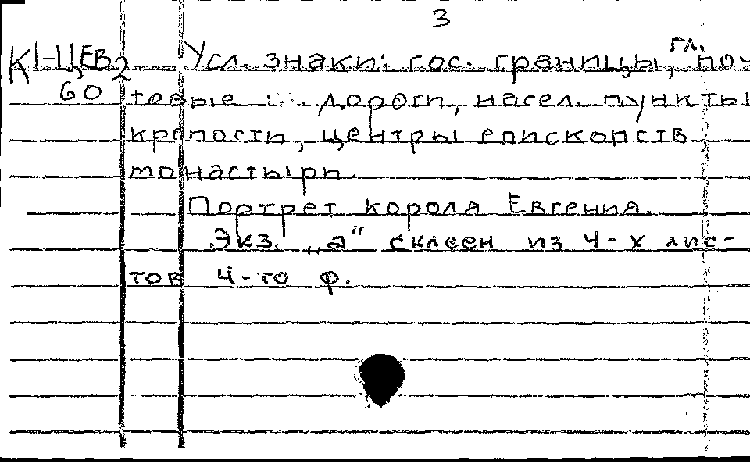 3
К1-ЦЕВ2 Усл. знаки: гос. границы, гл. поч-
60 товые дороги, насел. пункты
крепости, центры епископств
монастыри.
Портрет короля Евгения.
Экз. „а“ склеен из 4-х лис-
тов 4-то ф.